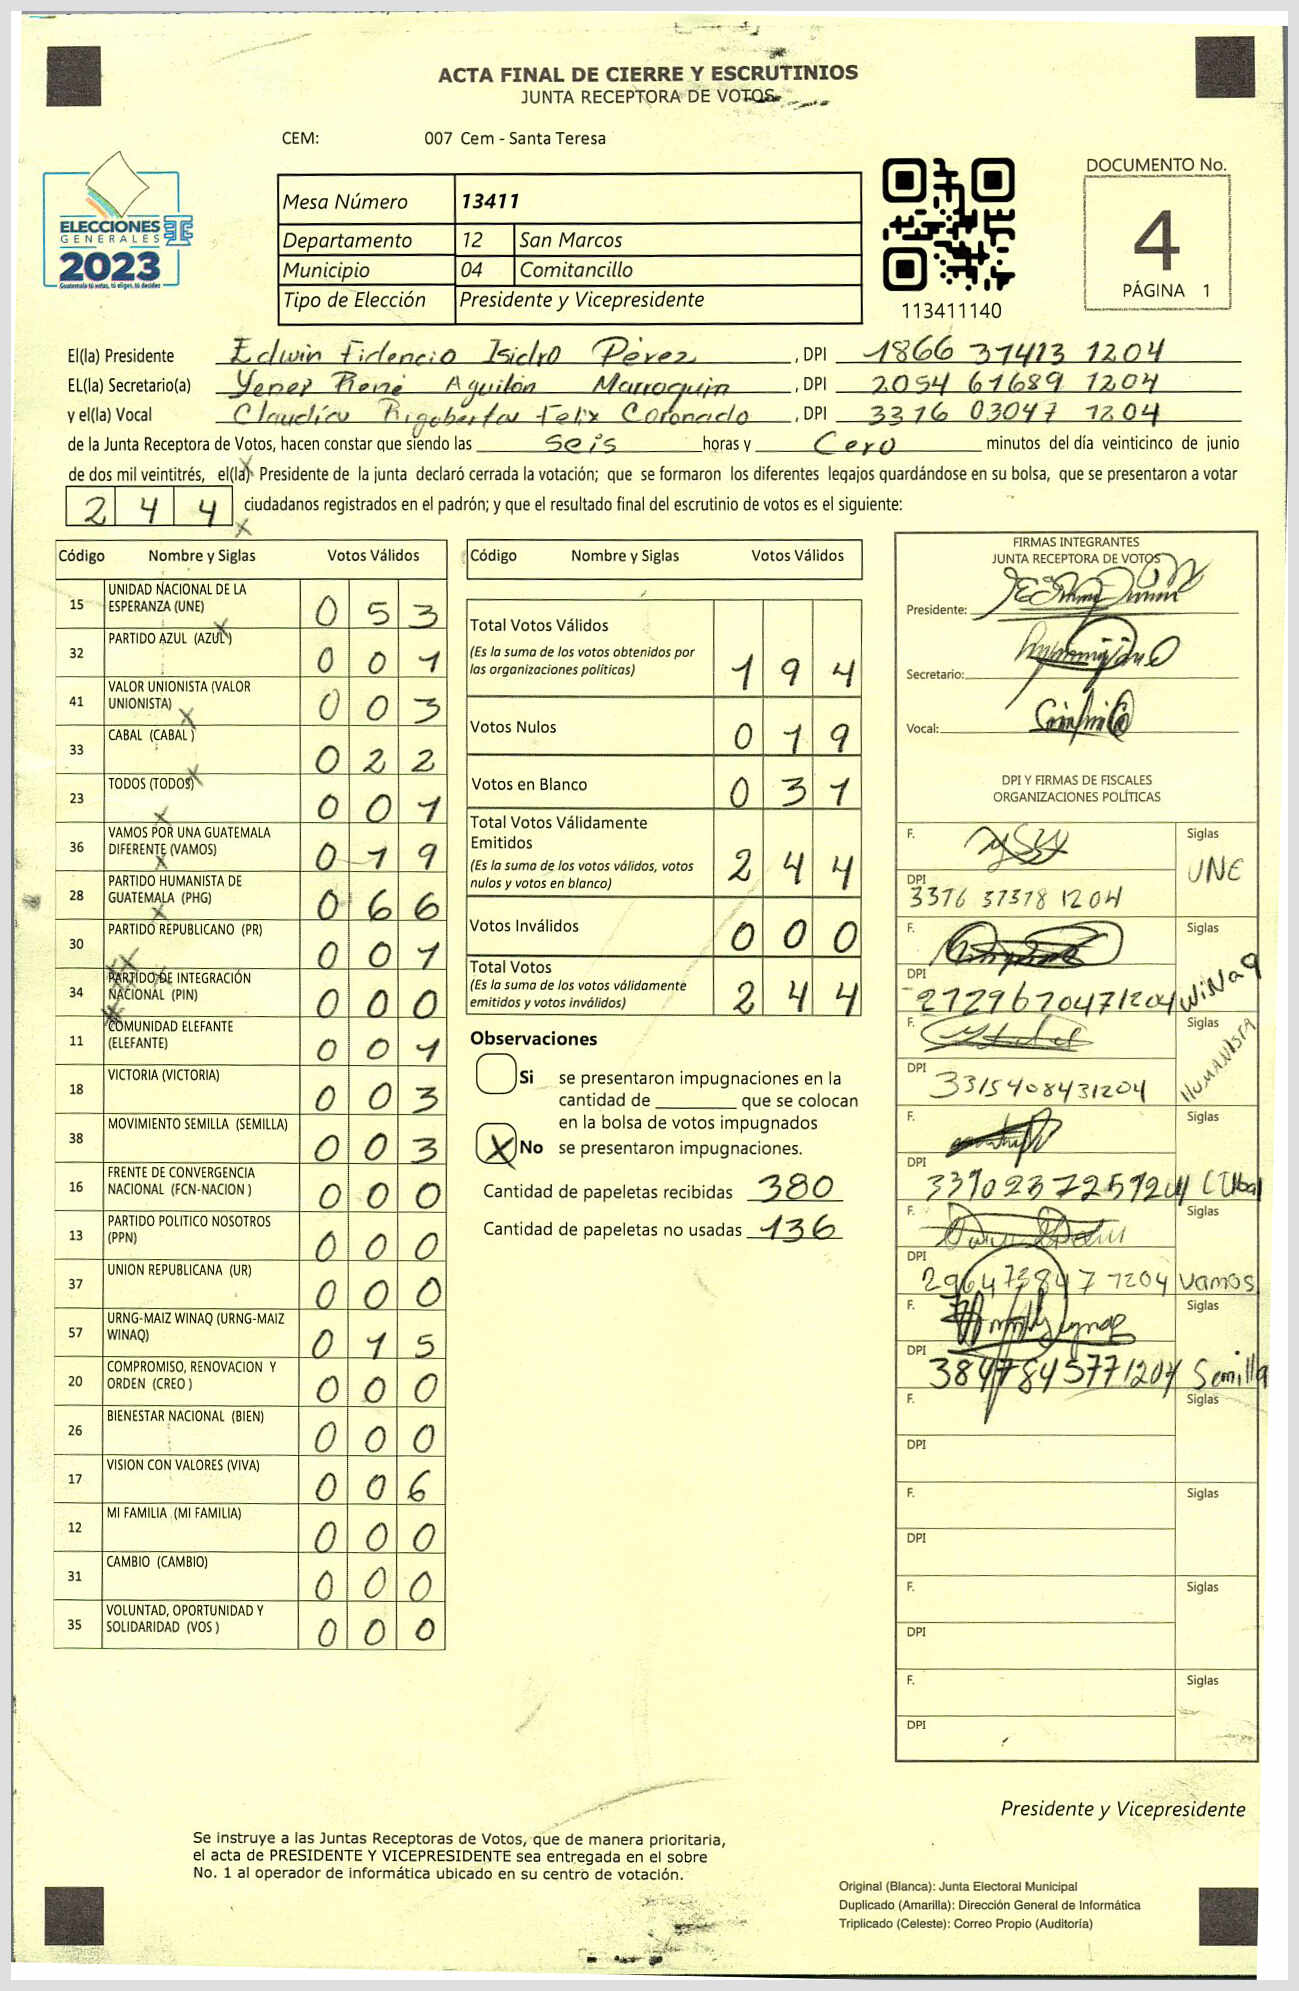 ACTA FINAL DE CIERRE Y ESCRUTINIOS
JUNTA RECEPTORA DE VOTOS
CEM: 007 Cem - Santa Teresa
ELECCIONES
GENERALES
2023
Guatemala tú votas, tú eliges, tú decides
Mesa Número 13411
Departamento 12 San Marcos
Municipio 04 Comitancillo
Tipo de Elección Presidente y Vicepresidente
113411140
DOCUMENTO No.
4
PÁGINA 1
El(la) Presidente Edwin Fidencio Isidro Pérez, DPI 1866 37413 1204
EL(la) Secretario(a) Yener René Aguilón Marroquin, DPI 2054 61689 1204
y el(la) Vocal Claudia Rigoberta Felix Coronado, DPI 3316 03047 1204
de la Junta Receptora de Votos, hacen constar que siendo las seis horas y Cero minutos del día veinticinco de junio
de dos mil veintitrés, el(la) Presidente de la junta declaró cerrada la votación; que se formaron los diferentes legajos quardándose en su bolsa, que se presentaron a votar
244 ciudadanos registrados en el padrón; y que el resultado final del escrutinio de votos es el siguiente:
Código Nombre y Siglas Votos Válidos
15 UNIDAD NACIONAL DE LA ESPERANZA (UNE) 053
32 PARTIDO AZUL (AZUL) 001
41 VALOR UNIONISTA (VALOR UNIONISTA) 003
33 CABAL (CABAL) 022
23 TODOS (TODOS) 001
36 VAMOS POR UNA GUATEMALA DIFERENTE (VAMOS) 019
28 PARTIDO HUMANISTA DE GUATEMALA (PHG) 066
30 PARTIDO REPUBLICANO (PR) 001
34 PARTIDO DE INTEGRACIÓN NACIONAL (PIN) 000
11 COMUNIDAD ELEFANTE (ELEFANTE) 001
18 VICTORIA (VICTORIA) 003
38 MOVIMIENTO SEMILLA (SEMILLA) 003
16 FRENTE DE CONVERGENCIA NACIONAL (FCN-NACION) 000
13 PARTIDO POLITICO NOSOTROS (PPN) 000
37 UNION REPUBLICANA (UR) 000
57 URNG-MAIZ WINAQ (URNG-MAIZ WINAQ) 015
20 COMPROMISO, RENOVACION Y ORDEN (CREO) 000
26 BIENESTAR NACIONAL (BIEN) 000
17 VISION CON VALORES (VIVA) 006
12 MI FAMILIA (MI FAMILIA) 000
31 CAMBIO (CAMBIO) 000
35 VOLUNTAD, OPORTUNIDAD Y SOLIDARIDAD (VOS) 000
Código Nombre y Siglas Votos Válidos
Total Votos Válidos
(Es la suma de los votos obtenidos por
las organizaciones politicas) 194
Votos Nulos 019
Votos en Blanco 031
Total Votos Válidamente
Emitidos
(Es la suma de los votos válidos, votos
nulos y votos en blanco) 244
Votos Inválidos 000
Total Votos
(Es la suma de los votos válidamente
emitidos y votos inválidos) 244
Observaciones
Si se presentaron impugnaciones en la
cantidad de ________ que se colocan
en la bolsa de votos impugnados
X No se presentaron impugnaciones.
Cantidad de papeletas recibidas 380
Cantidad de papeletas no usadas 136
FIRMAS INTEGRANTES
JUNTA RECEPTORA DE VOTOS
Presidente:
Secretario:
Vocal:
DPI Y FIRMAS DE FISCALES
ORGANIZACIONES POLÍTICAS
F. Siglas
UNE
DPI
3376 37378 1204
F. Siglas
WiNaq
DPI
2729670471204
F. Siglas
HUMANISTA
DPI
3315408431204
F. Siglas
DPI
F. Siglas
DPI
2964738477204 Vamos
F. Siglas
DPI
3847845771204 Semilla
F. Siglas
DPI
F. Siglas
DPI
F. Siglas
DPI
F. Siglas
DPI
Presidente y Vicepresidente
Se instruye a las Juntas Receptoras de Votos, que de manera prioritaria,
el acta de PRESIDENTE Y VICEPRESIDENTE sea entregada en el sobre
No. 1 al operador de informática ubicado en su centro de votación.
Original (Blanca): Junta Electoral Municipal
Duplicado (Amarilla): Dirección General de Informática
Triplicado (Celeste): Correo Propio (Auditoría)